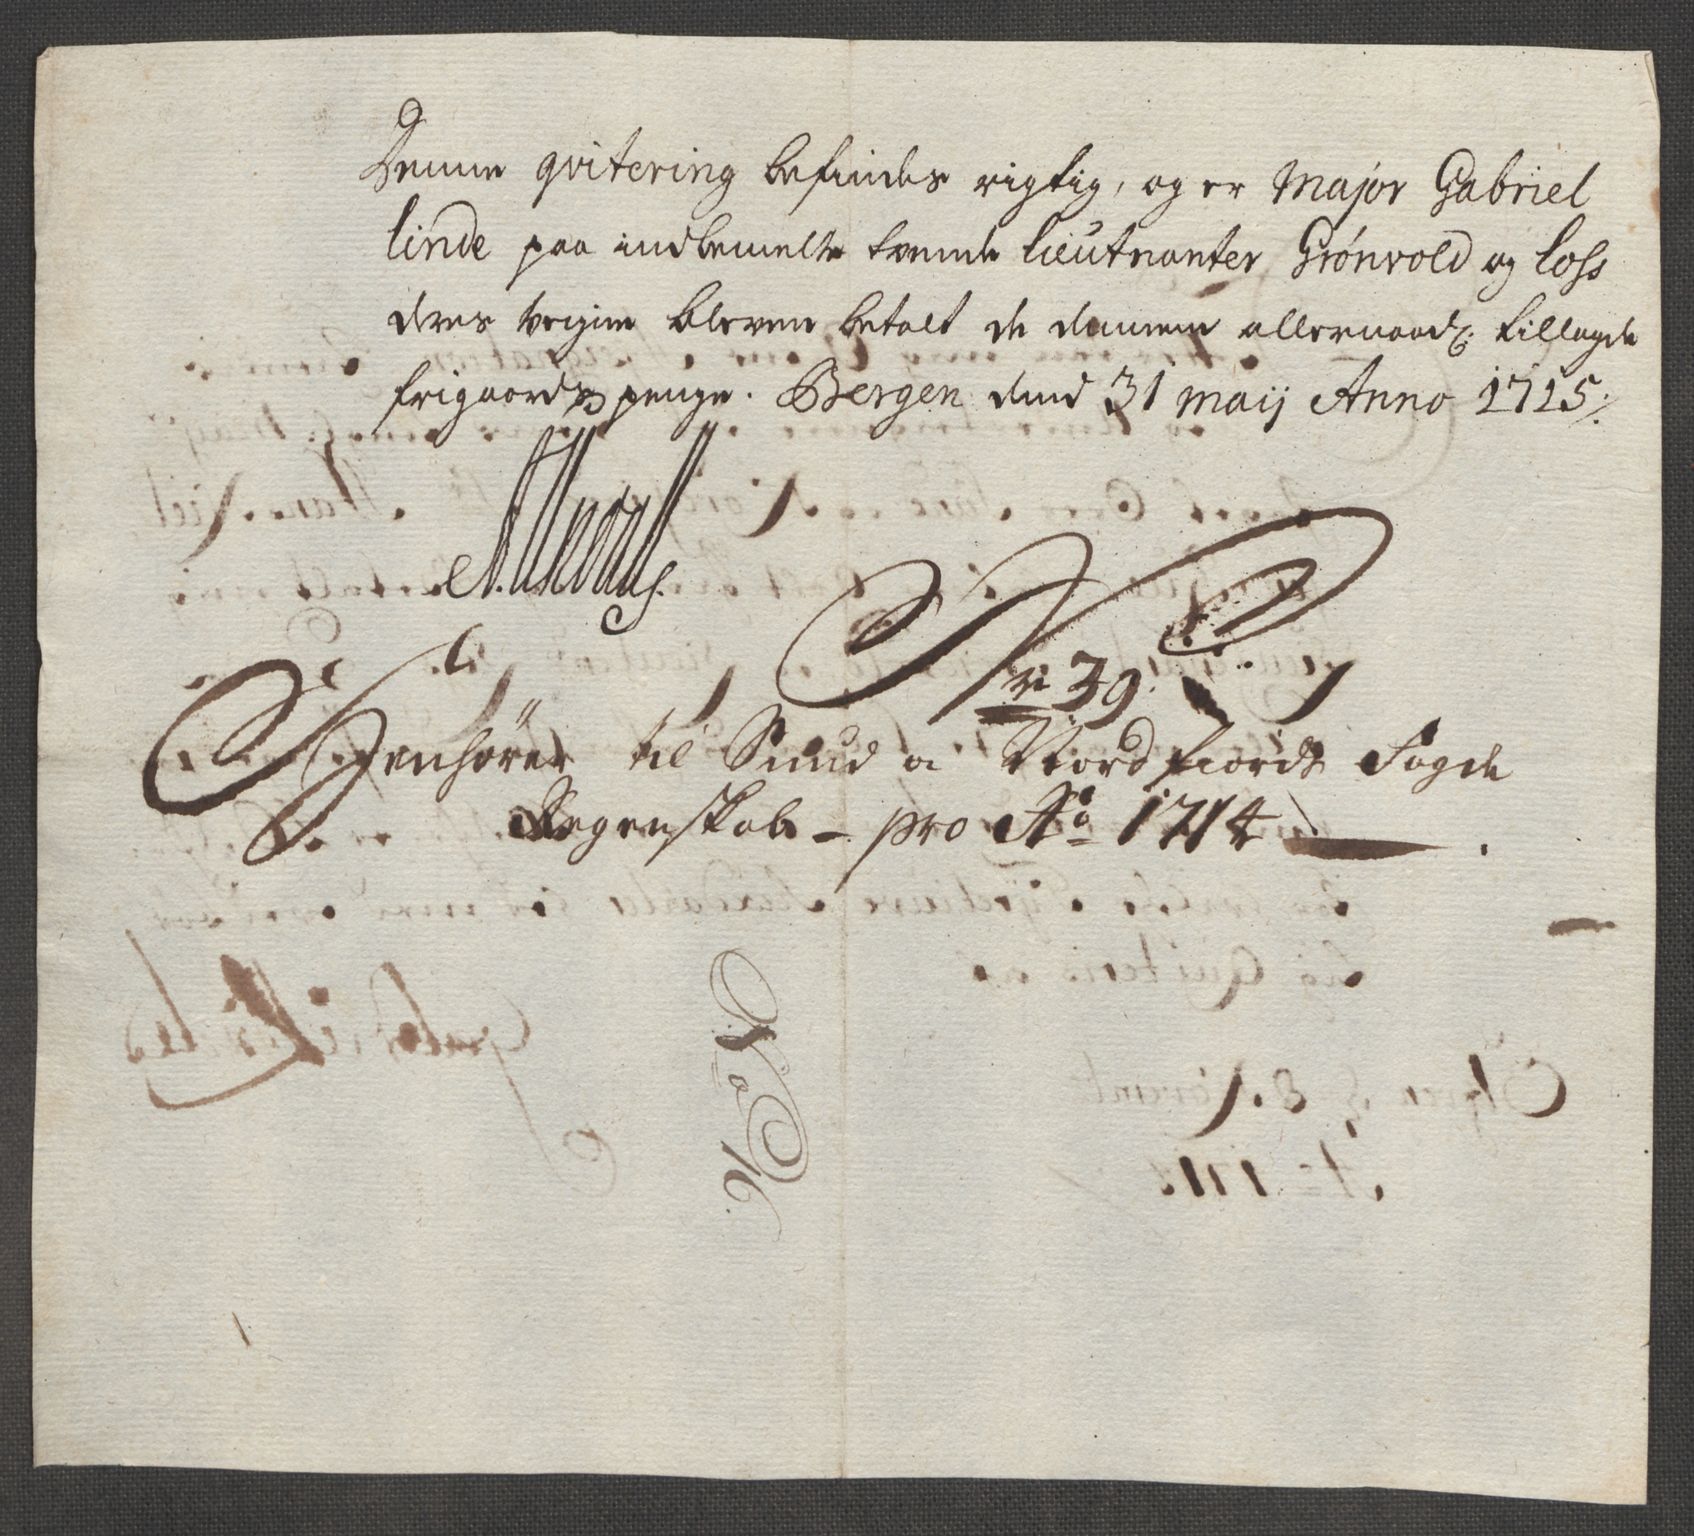 Denne qvitering befindes rigtig, og er Major Gabriel
Linde paa indbemelte tvende Lieutnanter Grónvold og Loss
deres vegne bleven betalt de dennem allernaadg: tillagde
frigaards penge. Bergen dend 31 Maij Anno 1715 ./.
Nr 39.
Henhörer til Sund og Nordfiords Fogde
Regenskab - pro Ao 1714
No 16.